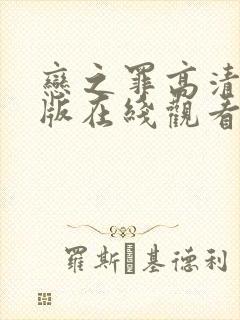 戀之罪高清
版在綫觀看
羅斯·基德利